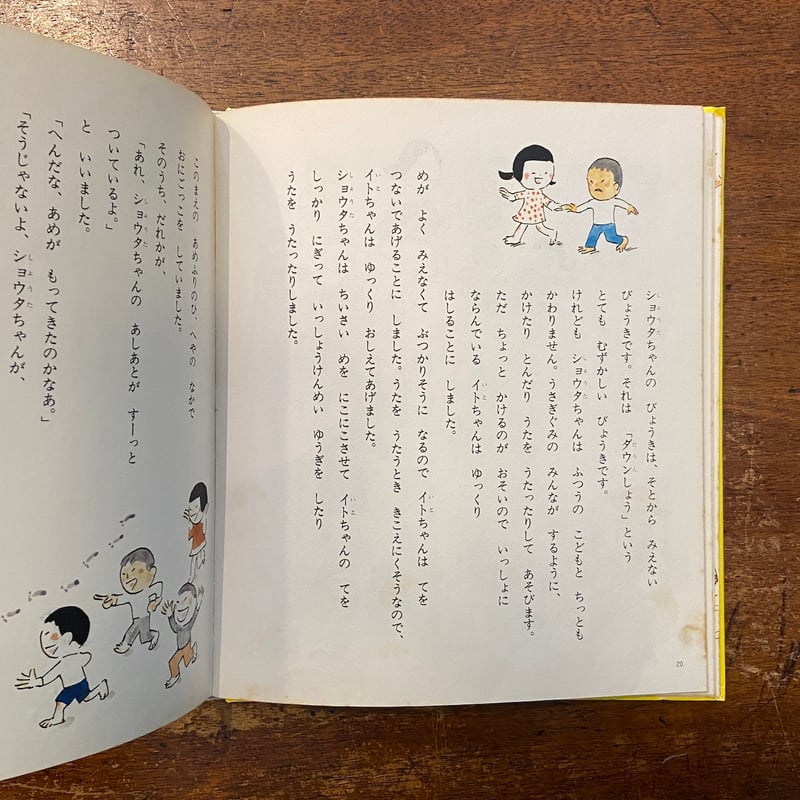 ショウタちゃんの びょうきは、そとから みえない
びょうきです。それは 「ダウンしょう」という
とても むずかしい びょうきです。
けれども ショウタちゃんは ふつうの こどもと ちっとも
かわりません。うさぎぐみの みんなが するように、
かけたり とんだり うたを うたったりして あそびます。
ただ ちょっと かけるのが おそいので いっしょに
ならんでいる イトちゃんは ゆっくり
はしることに しました。
めが よく みえなくて ぶつかりそうに なるので イトちゃんは てを
つないであげることに しました。うたを うたうとき きこえにくそうなので、
イトちゃんは ゆっくり おしえてあげました。
ショウタちゃんは ちいさい めを にこにこさせて イトちゃんの てを
しっかり にぎって いっしょうけんめい ゆうぎを したり
うたを うたったりしました。
20
このまえの あめふりのひ、へやの なかで
おにごっこを していました。
そのうち、だれかが、
「あれ、ショウタちゃんの あしあとが すーっと
ついているよ。」
と いいました。
「へんだな、あめが もってきたのかなあ。」
「そうじゃないよ、ショウタちゃんが、